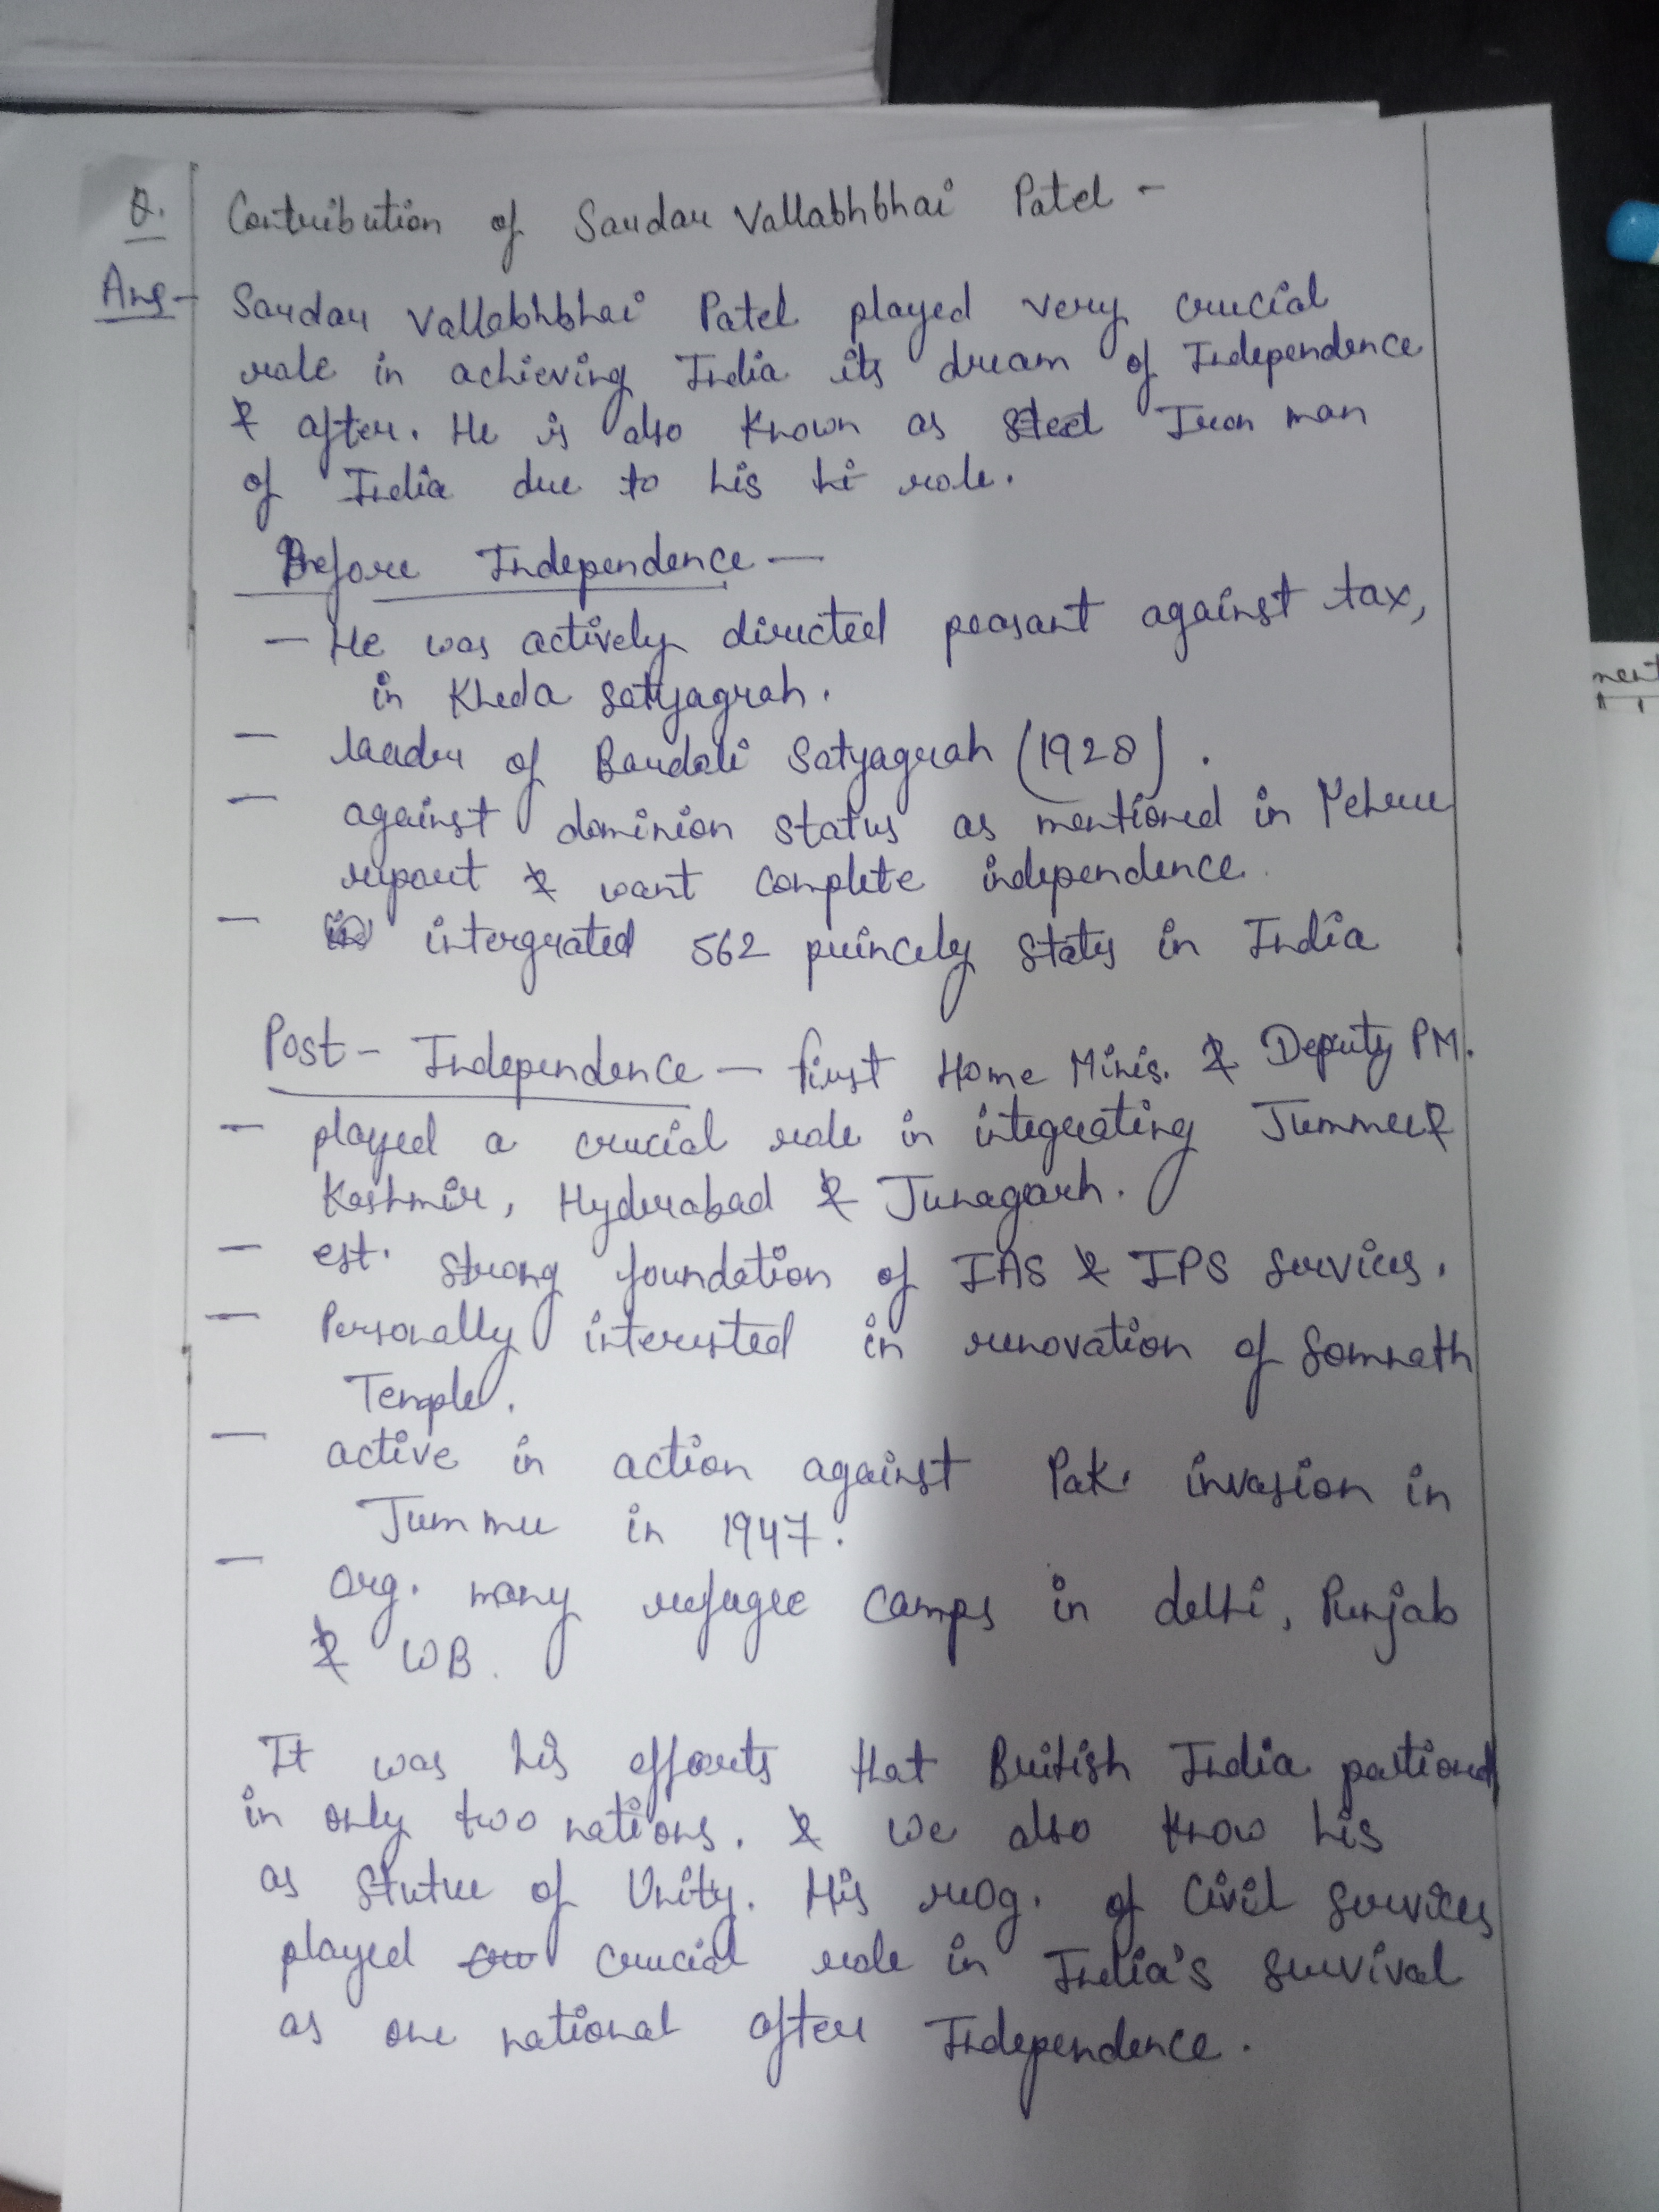 Q. Contribution of Sardar Vallabhbhai Patel -
Ans - Sardar Vallabhbhai Patel played very crucial
role in achieving India its dream of Independence
& after. He is also known as Steel Iron man
of India due to his hi role.
Before Independence —
— He was actively directed peasant against tax,
in Kheda Satyagrah.
— leader of Bardoli Satyagrah (1928).
— against dominion status as mentioned in Nehru
report & want complete independence.
— intergrated 562 princely states in India
Post - Independence — first Home Minis. & Deputy PM.
— played a crucial role in integrating Jummu &
Kashmir, Hyderabad & Junagarh.
— est. strong foundation of IAS & IPS services.
— Personally interested in renovation of Somnath
Temple.
— active in action against Pak. invasion in
Jummu in 1947.
— Org. many refugee camps in delhi, Punjab
& WB.
It was his efforts that British India partioned
in only two nations. & we also know his
as Statue of Unity. His reog. of Civil Services
played cru crucial role in India's survival
as one national after Independence.
ment